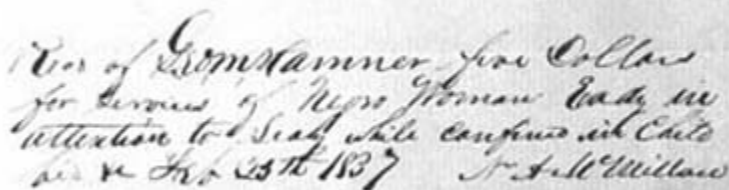 Rec of Geo M Hamner five Dollars
for services of Negro Woman Eady in
attention to Sealy while confined in Child
bed &c Feb 25th 1837 N A McMillan